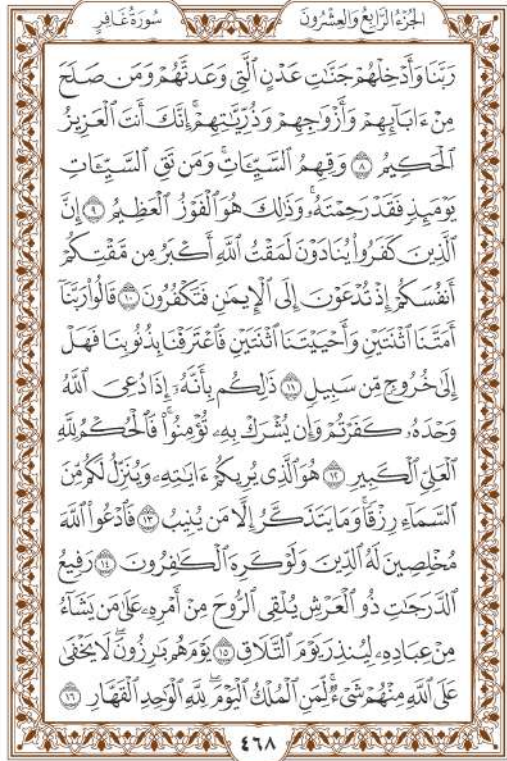 الجُزْءُ الرَّابِعُ وَالعِشْرُونَ سُورَةُ غَافِر
رَبَّنَا وَأَدْخِلْهُمْ جَنَّٰتِ عَدْنٍ ٱلَّتِى وَعَدتَّهُمْ وَمَن صَلَحَ
مِنْ ءَابَآئِهِمْ وَأَزْوَٰجِهِمْ وَذُرِّيَّٰتِهِمْ ۚ إِنَّكَ أَنتَ ٱلْعَزِيزُ
ٱلْحَكِيمُ ٨ وَقِهِمُ ٱلسَّيِّـَٔاتِ ۚ وَمَن تَقِ ٱلسَّيِّـَٔاتِ
يَوْمَئِذٍ فَقَدْ رَحِمْتَهُۥ ۚ وَذَٰلِكَ هُوَ ٱلْفَوْزُ ٱلْعَظِيمُ ٩ إِنَّ
ٱلَّذِينَ كَفَرُوا۟ يُنَادَوْنَ لَمَقْتُ ٱللَّهِ أَكْبَرُ مِن مَّقْتِكُمْ
أَنفُسَكُمْ إِذْ تُدْعَوْنَ إِلَى ٱلْإِيمَٰنِ فَتَكْفُرُونَ ١٠ قَالُوا۟ رَبَّنَآ
أَمَتَّنَا ٱثْنَتَيْنِ وَأَحْيَيْتَنَا ٱثْنَتَيْنِ فَٱعْتَرَفْنَا بِذُنُوبِنَا فَهَلْ
إِلَىٰ خُرُوجٍ مِّن سَبِيلٍ ١١ ذَٰلِكُم بِأَنَّهُۥٓ إِذَا دُعِىَ ٱللَّهُ
وَحْدَهُۥ كَفَرْتُمْ وَإِن يُشْرَكْ بِهِۦ تُؤْمِنُوا۟ ۚ فَٱلْحُكْمُ لِلَّهِ
ٱلْعَلِىِّ ٱلْكَبِيرِ ١٢ هُوَ ٱلَّذِى يُرِيكُمْ ءَايَٰتِهِۦ وَيُنَزِّلُ لَكُم مِّنَ
ٱلسَّمَآءِ رِزْقًا ۚ وَمَا يَتَذَكَّرُ إِلَّا مَن يُنِيبُ ١٣ فَٱدْعُوا۟ ٱللَّهَ
مُخْلِصِينَ لَهُ ٱلدِّينَ وَلَوْ كَرِهَ ٱلْكَٰفِرُونَ ١٤ رَفِيعُ
ٱلدَّرَجَٰتِ ذُو ٱلْعَرْشِ يُلْقِى ٱلرُّوحَ مِنْ أَمْرِهِۦ عَلَىٰ مَن يَشَآءُ
مِنْ عِبَادِهِۦ لِيُنذِرَ يَوْمَ ٱلتَّلَاقِ ١٥ يَوْمَ هُم بَٰرِزُونَ ۖ لَا يَخْفَىٰ
عَلَى ٱللَّهِ مِنْهُمْ شَىْءٌ ۚ لِّمَنِ ٱلْمُلْكُ ٱلْيَوْمَ ۖ لِلَّهِ ٱلْوَٰحِدِ ٱلْقَهَّارِ ١٦
٤٦٨